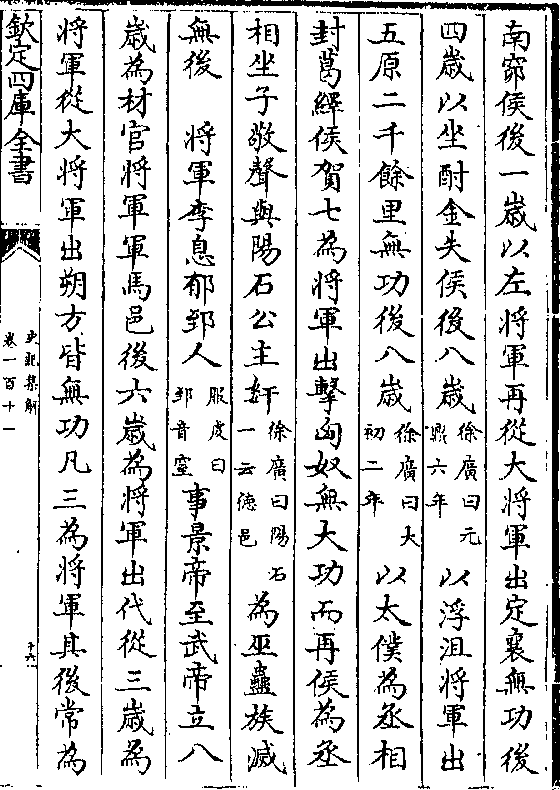 南窌侯後一歲以左將軍再從大將軍出定襄無功後
四歲以坐酎金失侯後八歲徐廣曰元鼎六年以浮沮將軍出
五原二千餘里無功後八歲徐廣曰大初二年以太僕為丞相
封葛繹侯賀七為將軍出擊匈奴無大功而再侯為丞
相坐子敬聲與陽石公主奸徐廣曰陽石一云德邑為巫蠱族滅
無後　將軍李息郁郅人服虔曰郅音窒事景帝至武帝立八
歲為材官將軍軍馬邑後六歲為將軍出代從三歲為
將軍從大將軍出朔方皆無功凡三為將軍其後常為
欽定四庫全書
史記集解
卷一百十一
十六